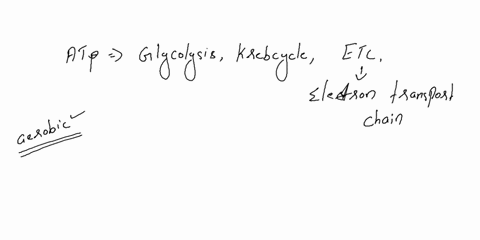 ATP => Glycolysis, Krebcycle, ETC.
Electron transport
chain
aerobic ✓